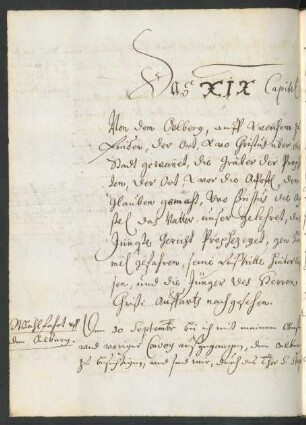 Das XIX Capitel
Von dem Oelberg, auff welchem zu
finden, der Ort, wo Christus über die
Stadt geweinet, die Gräber der Prophe
ten, der Ort wo die Apostel den
Glauben gemacht, wo Christus die Apo
stel das Vatter unser gelehret, das
Jüngste Gericht Prophezeyet, gen Him
mel gefahren, seine Fußstapfen hinterlas
sen, und die Jünger des Herren
Christi Auffarts nachgesehen.
Wahlfahrt auff
dem Oelberg.
Den 20 Septembr bin ich mit meinem
und voriger Convoy außgegangen, den Oelberg
zu besichtigen, und sind wir, durch das Thor S. Steph